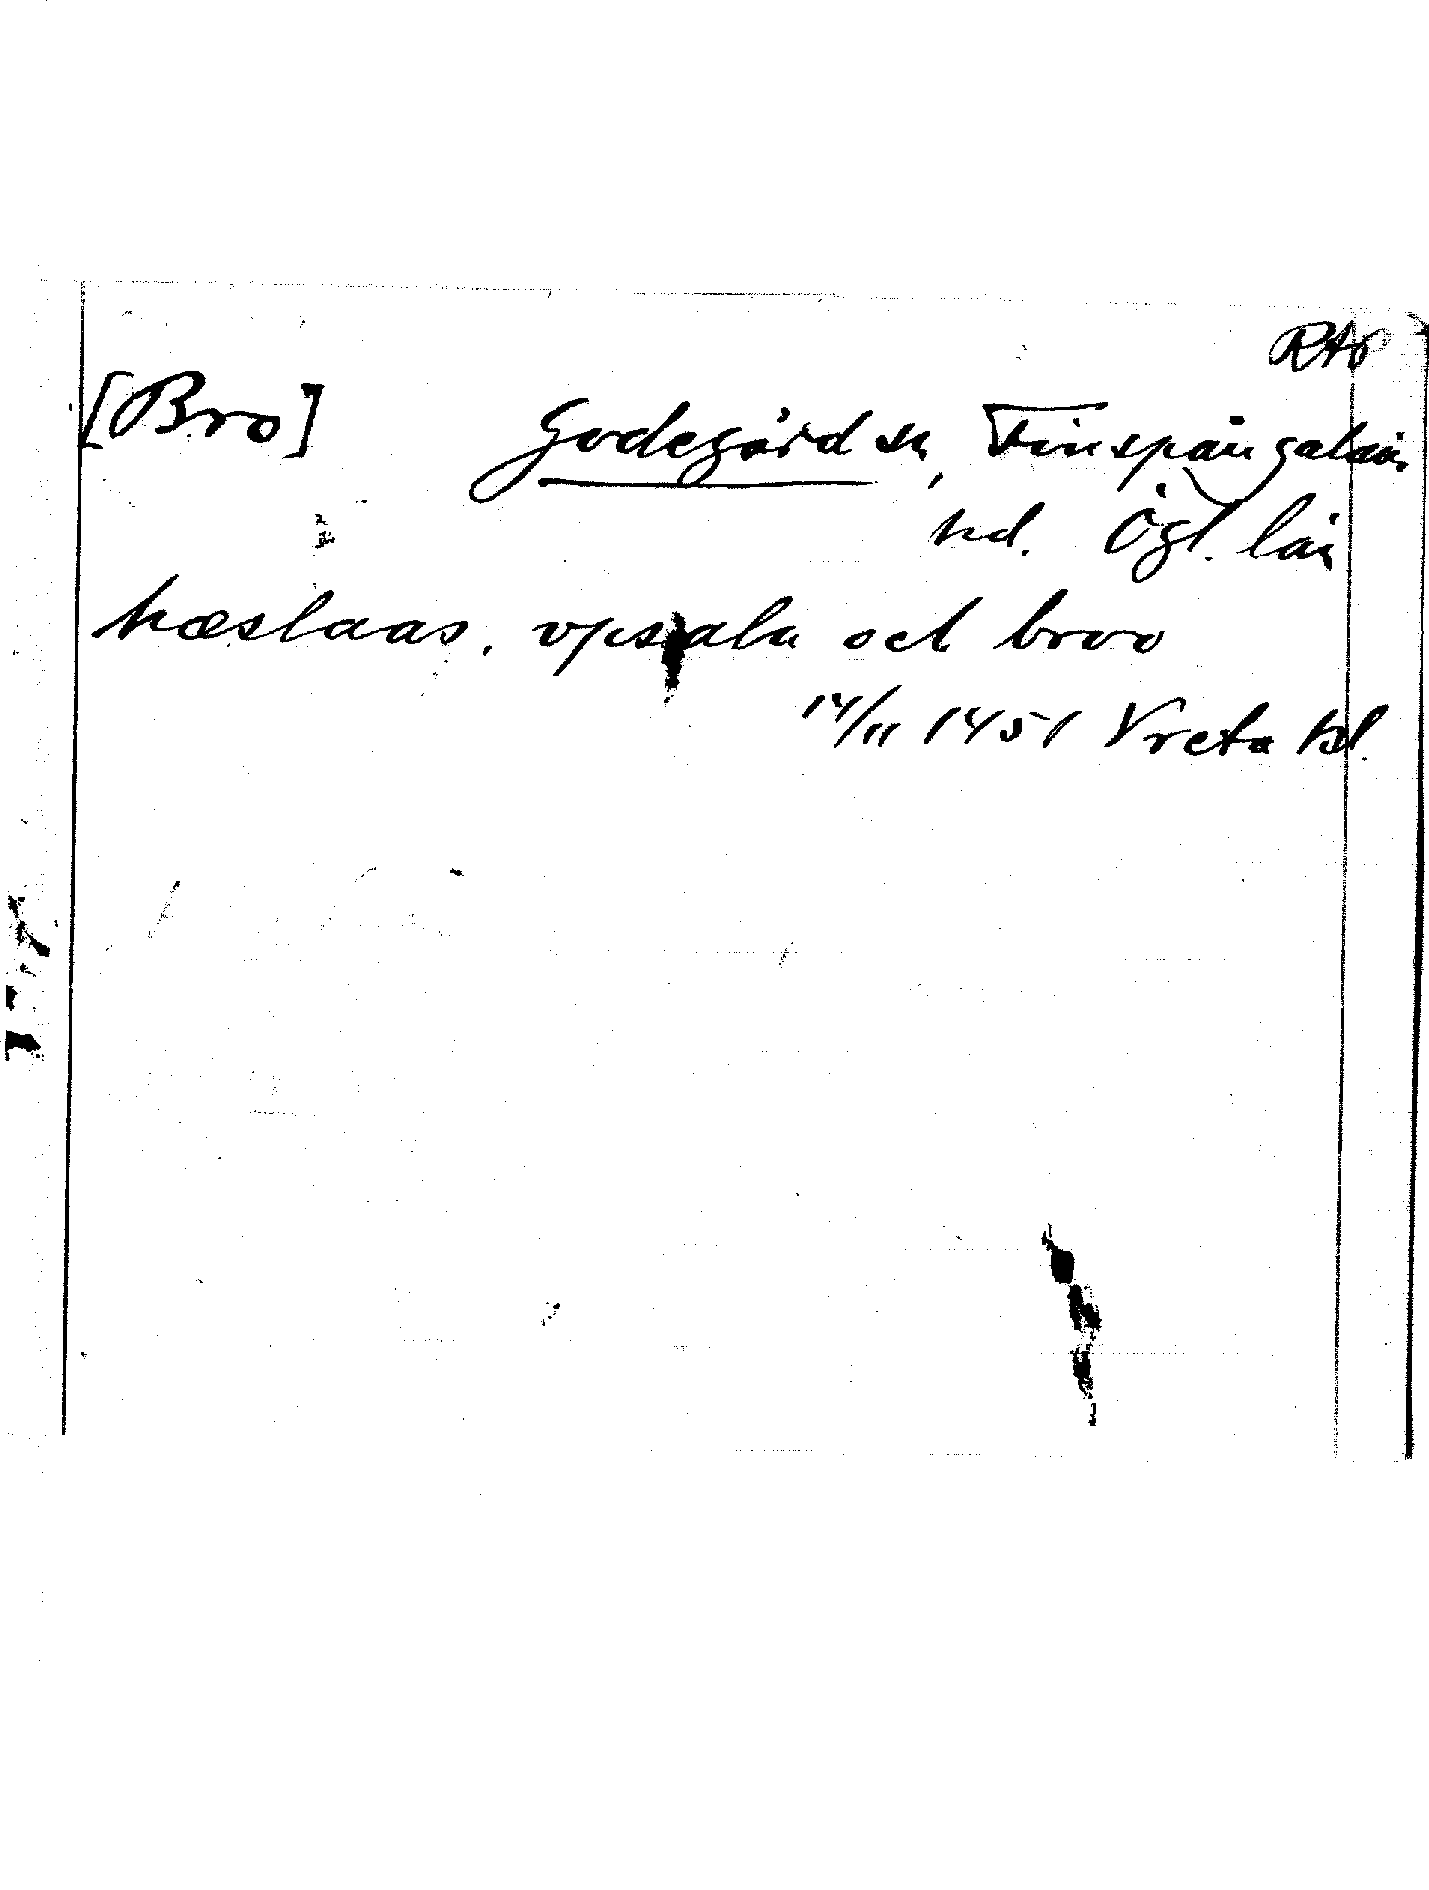 RAp
[Bro] Godegård sn, Finspångalän
hd. Ögl. län
hæslaas, vpsala och broo
14/11 1451 Vreta kl.